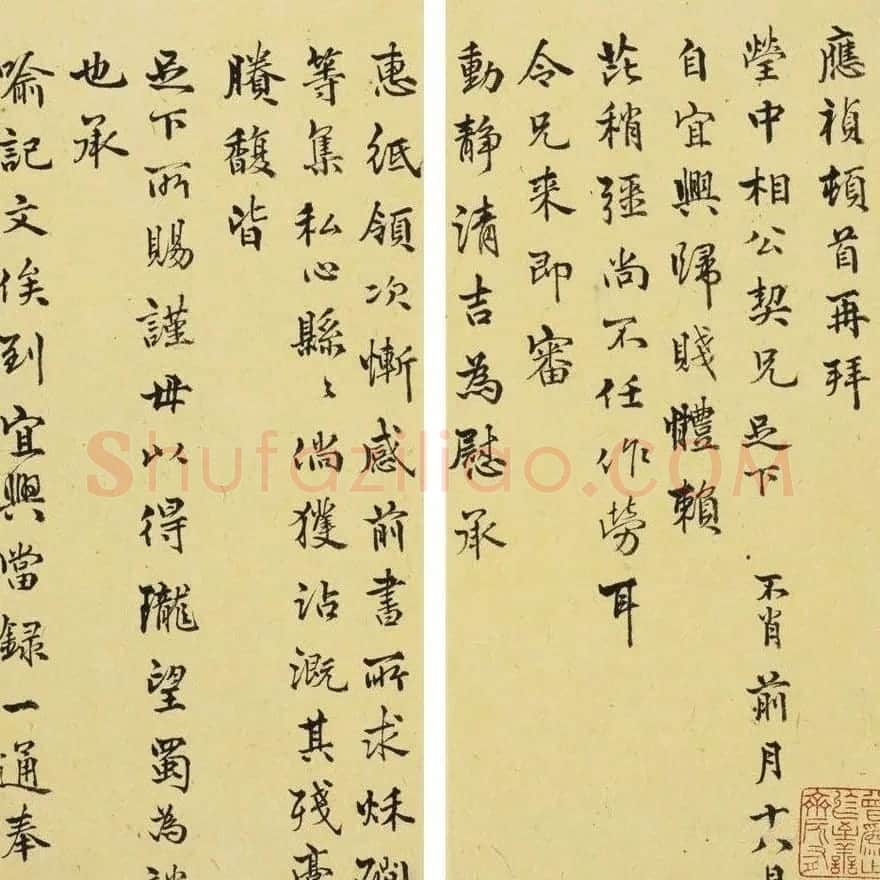 應禎頓首再拜
瑩中相公契兄足下 不肖前月十八日
自宜興歸賤體賴
芘稍彊尚不任作勞耳
令兄来即審
動靜清吉為慰承
惠紙領次慚感前書所求
等集私心縣〻倘獲沾溉其殘膏
賸馥皆
足下所賜謹毋以得隴望蜀為
也承
喻記文俟到宜興當録一通奉
Shufaziliao.COM